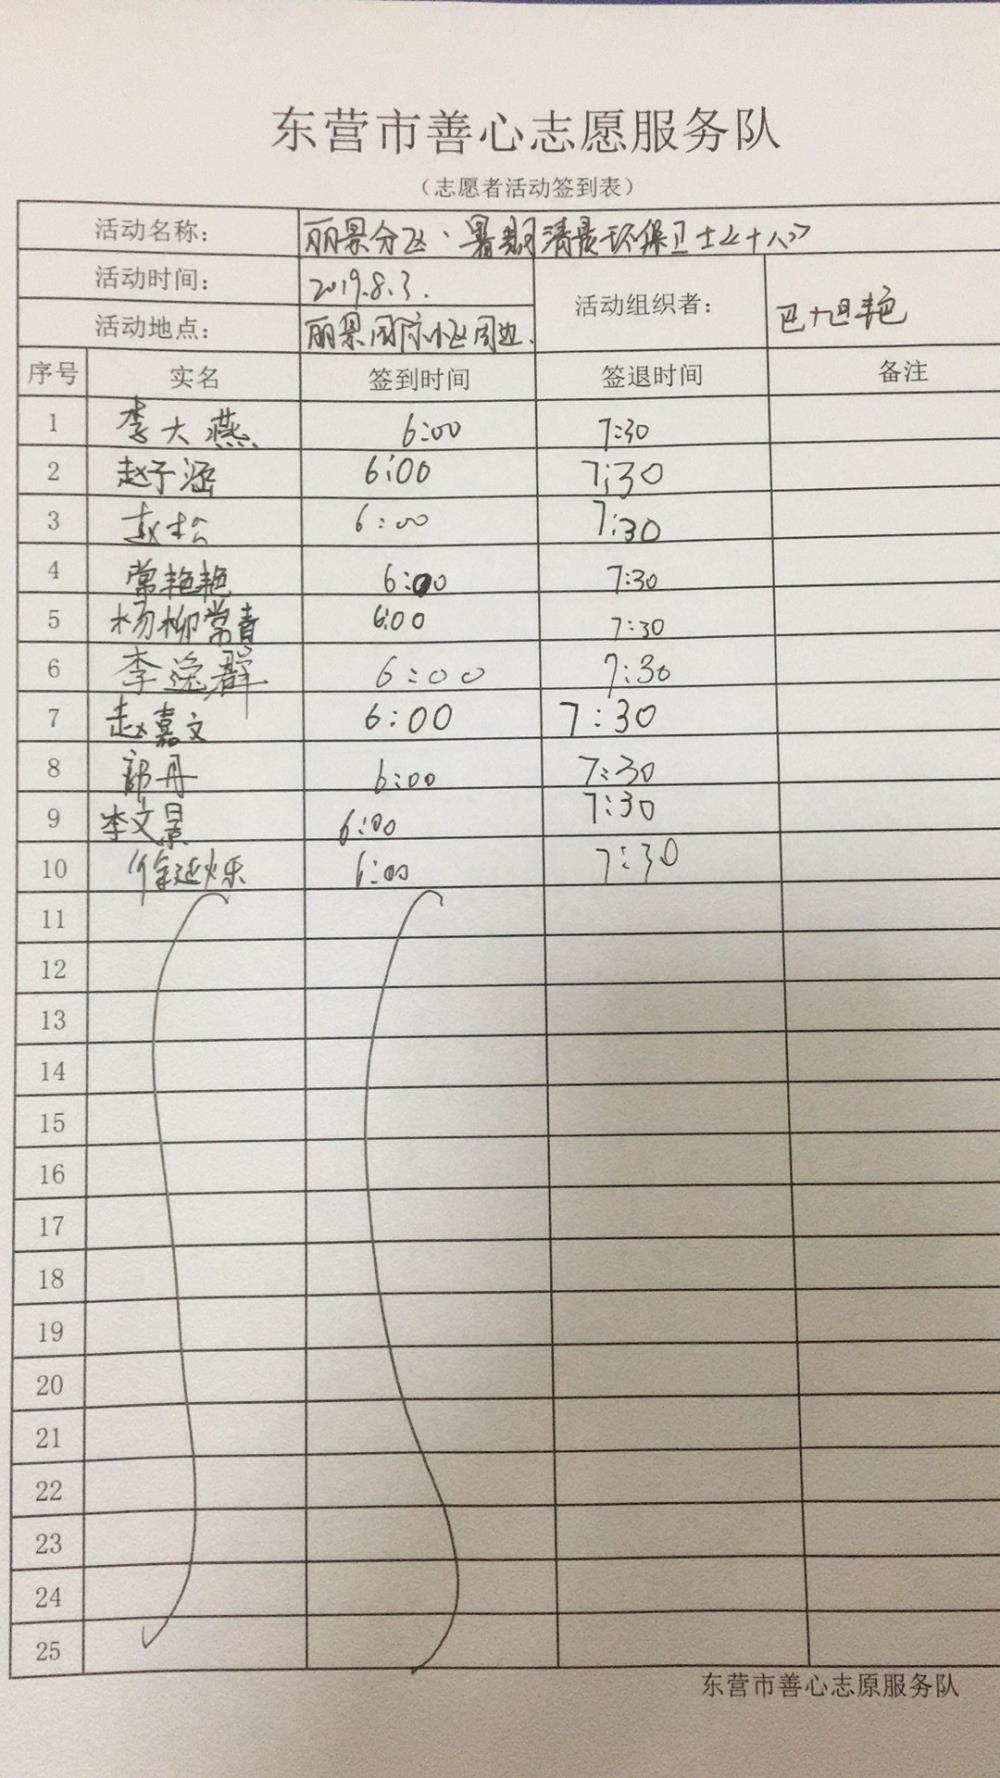 东营市善心志愿服务队
（志愿者活动签到表）
活动名称： 丽景分队·暑期清晨环保卫士《十八》
活动时间： 2019.8.3.
活动组织者： 巴旭艳
活动地点： 丽景国际小区周边.
序号 实名 签到时间 签退时间 备注
1 李大燕 6:00 7:30
2 赵子涵 6:00 7:30
3 赵松 6:00 7:30
4 常艳艳 6:00 7:30
5 杨柳常青 6:00 7:30
6 李逸群 6:00 7:30
7 赵嘉文 6:00 7:30
8 郭丹 6:00 7:30
9 李文景 6:00 7:30
10 徐延烁 6:00 7:30
11
12
13
14
15
16
17
18
19
20
21
22
23
24
25
东营市善心志原服务队